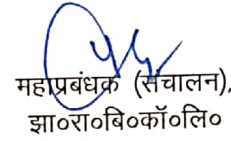 महाप्रबंधक (संचालन),
झा०रा०बि०कॉ०लि०